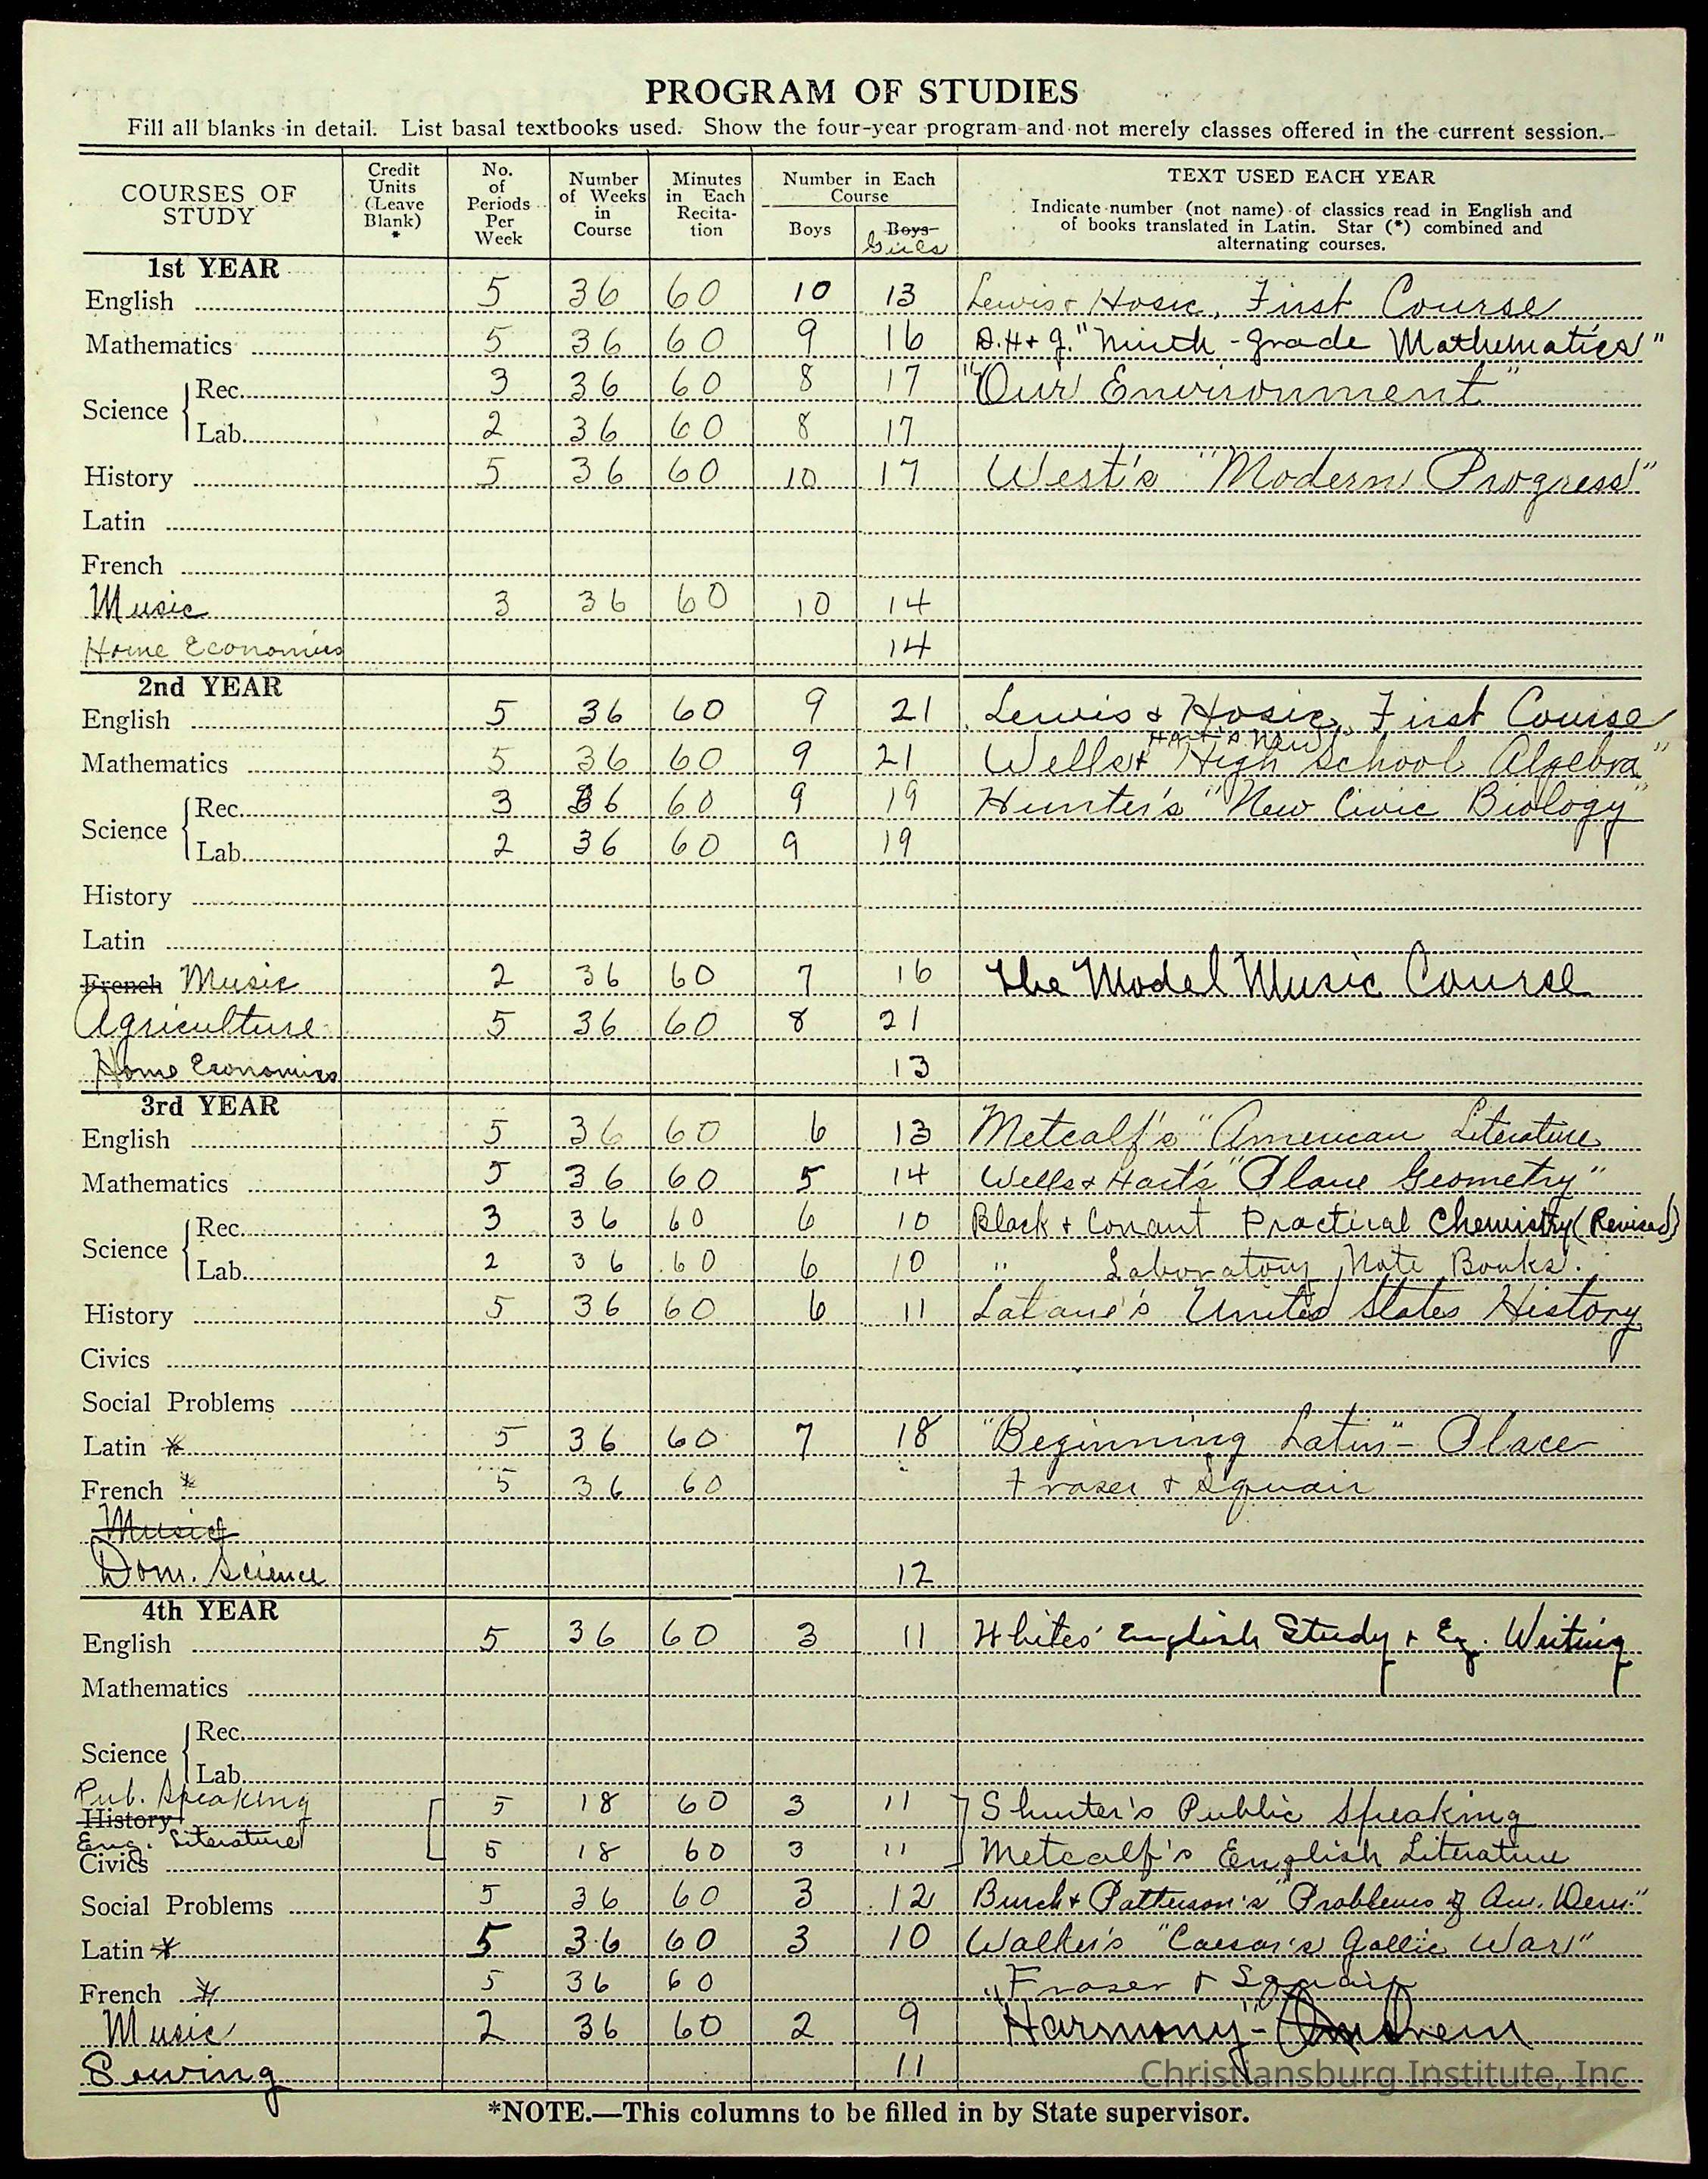 PROGRAM OF STUDIES
Fill all blanks in detail. List basal textbooks used. Show the four-year program and not merely classes offered in the current session.
COURSES OF STUDY Credit Units (Leave Blank) * No. of Periods Per Week Number of Weeks in Course Minutes in Each Recita-tion Number in Each Course Boys Boys Girls TEXT USED EACH YEAR
Indicate number (not name) of classics read in English and of books translated in Latin. Star (*) combined and alternating courses.
1st YEAR
English 5 36 60 10 13 Lewis & Hosic, First Course
Mathematics 5 36 60 9 16 D.H & G. "Ninth-grade Mathematics"
Science Rec. 3 36 60 8 17 "Our Environment"
Lab. 2 36 60 8 17
History 5 36 60 10 17 West's "Modern Progress"
Latin
French
Music 3 36 60 10 14
Home Economics 14
2nd YEAR
English 5 36 60 9 21 Lewis & Hosic, First Course
Mathematics 5 36 60 9 21 Wells & Hart's New "High School Algebra"
Science Rec. 3 36 60 9 19 Hunter's "New Civic Biology"
Lab. 2 36 60 9 19
History
Latin
French Music 2 36 60 7 16 The Model Music Course
Agriculture 5 36 60 8 21
Home Economics 13
3rd YEAR
English 5 36 60 6 13 Metcalf's "American Literature
Mathematics 5 36 60 5 14 Wells & Hart's "Plane Geometry"
Science Rec. 3 36 60 6 10 Black & Conant Practical Chemistry (Revised)
Lab. 2 36 60 6 10 " Laboratory Note Books.
History 5 36 60 6 11 Latane's United States History
Civics
Social Problems
Latin * 5 36 60 7 18 "Beginning Latin" - Place
French * 5 36 60 Fraser & Squair
Music
Dom. Science 12
4th YEAR
English 5 36 60 3 11 Whites' English Study & Eg. Writing
Mathematics
Science Rec.
Lab.
Pub. Speaking
History 5 18 60 3 11 Shurter's Public Speaking
Eng. Literature
Civics 5 18 60 3 11 Metcalf's English Literature
Social Problems 5 36 60 3 12 Burch & Patterson's "Problems of Am. Dem."
Latin * 5 36 60 3 10 Walker's "Caesar's Gallic War"
French * 5 36 60 Fraser & Squair
Music 2 36 60 2 9 "Harmony" -
Sewing 11
Christiansburg Institute, Inc
*NOTE.—This columns to be filled in by State supervisor.